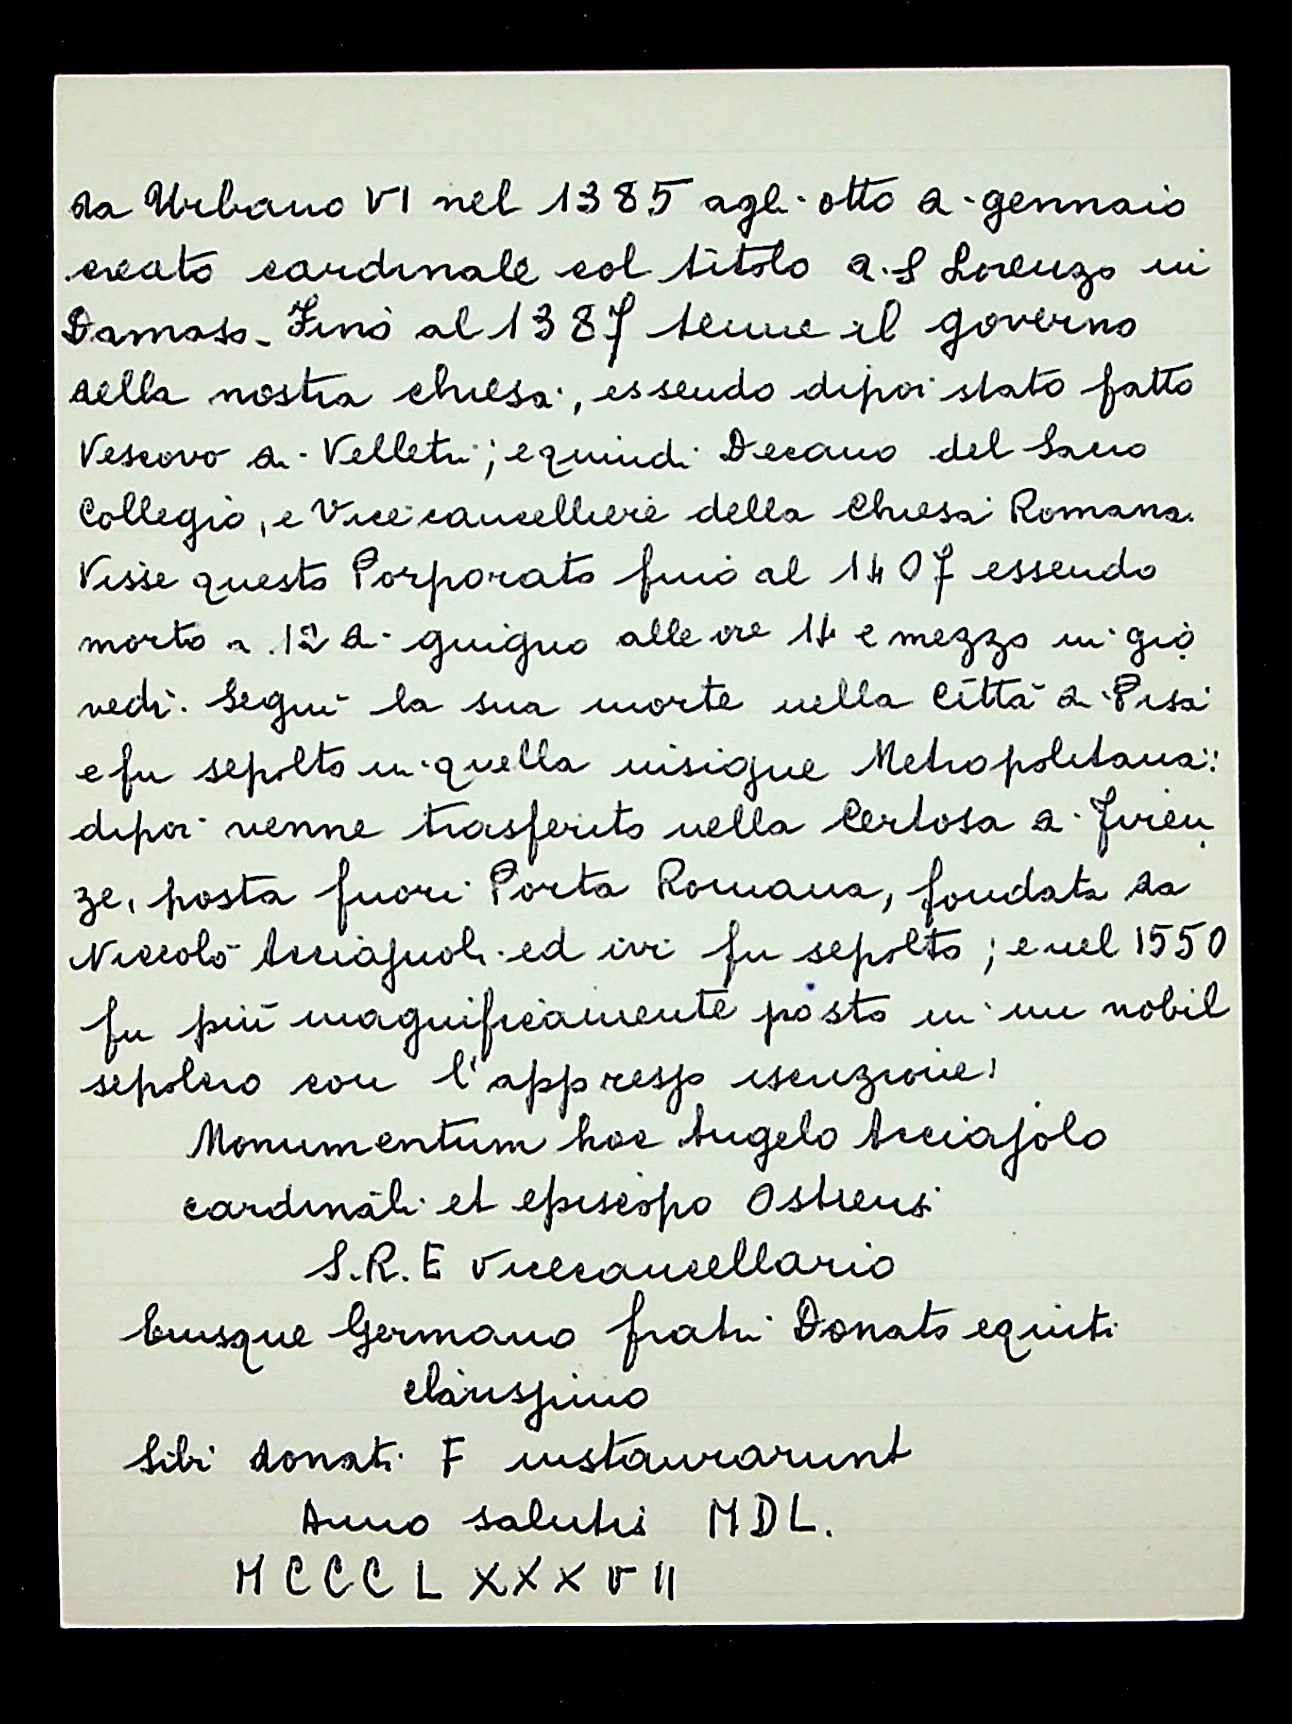 da Urbano VI nel 1385 agli otto di gennaio
creato cardinale col titolo di S Lorenzo in
Damaso. Fino al 1387 tenne il governo
della nostra chiesa, essendo dipoi stato fatto
Vescovo di Velletri; e quindi Decano del Sacro
Collegio, e Vice cancelliere della Chiesa Romana.
Visse questo Porporato fino al 1407 essendo
morto a 12 di giugno alle ore 14 e mezzo in gio
vedì. Seguì la sua morte nella Città di Pisa
e fu sepolto in quella insigne Metropolitana:
dipoi venne trasferito nella Certosa di Firen
ze, posta fuori Porta Romana, fondata da
Niccolò Acciajuoli ed ivi fu sepolto; e nel 1550
fu più magnificamente posto in un nobil
sepolcro con l'appresso iscrizione:
Monumentum hoc Angelo Acciajolo
cardinali et episcopo Ostiensi
S.R.E Vicecancellario
Eiusque Germano fratri Donato equiti
clarissimo
Sibi donati F instaurarunt
Anno salutis MDL.
MCCCLXXXVII